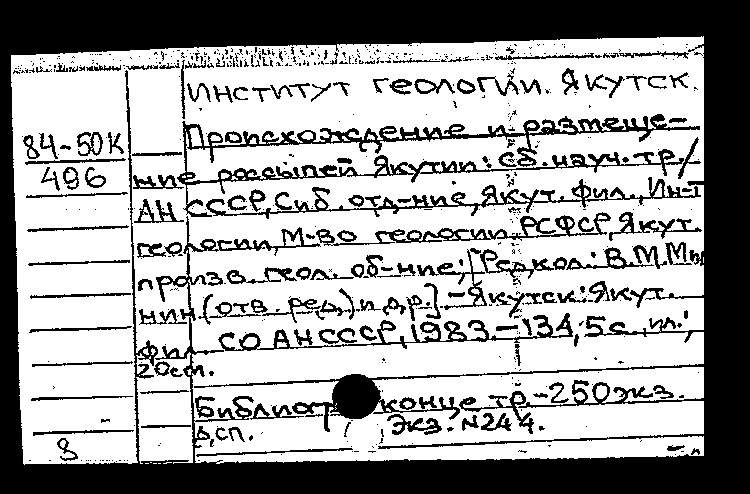 ИНСТИТУТ ГЕОЛОГИИ. ЯКУТСК.
84-50К
496
Происхождение и размеще-
ние россыпей Якутии: сб. науч. тр./
АН СССР, Сиб. отд-ние, Якут. фил., Ин-т
геологии, М-во геологии РСФСР, Якут.
произв. геол. об-ние; [Редкол.: В.М.Ми
нин (отв. ред.) и др.] - Якутск: Якут.
фил. СО АН СССР, 1983. - 134,5с., ил.;
20см.
Библиогр конце тр. - 250экз.
Д.сп. Экз. №244.
8